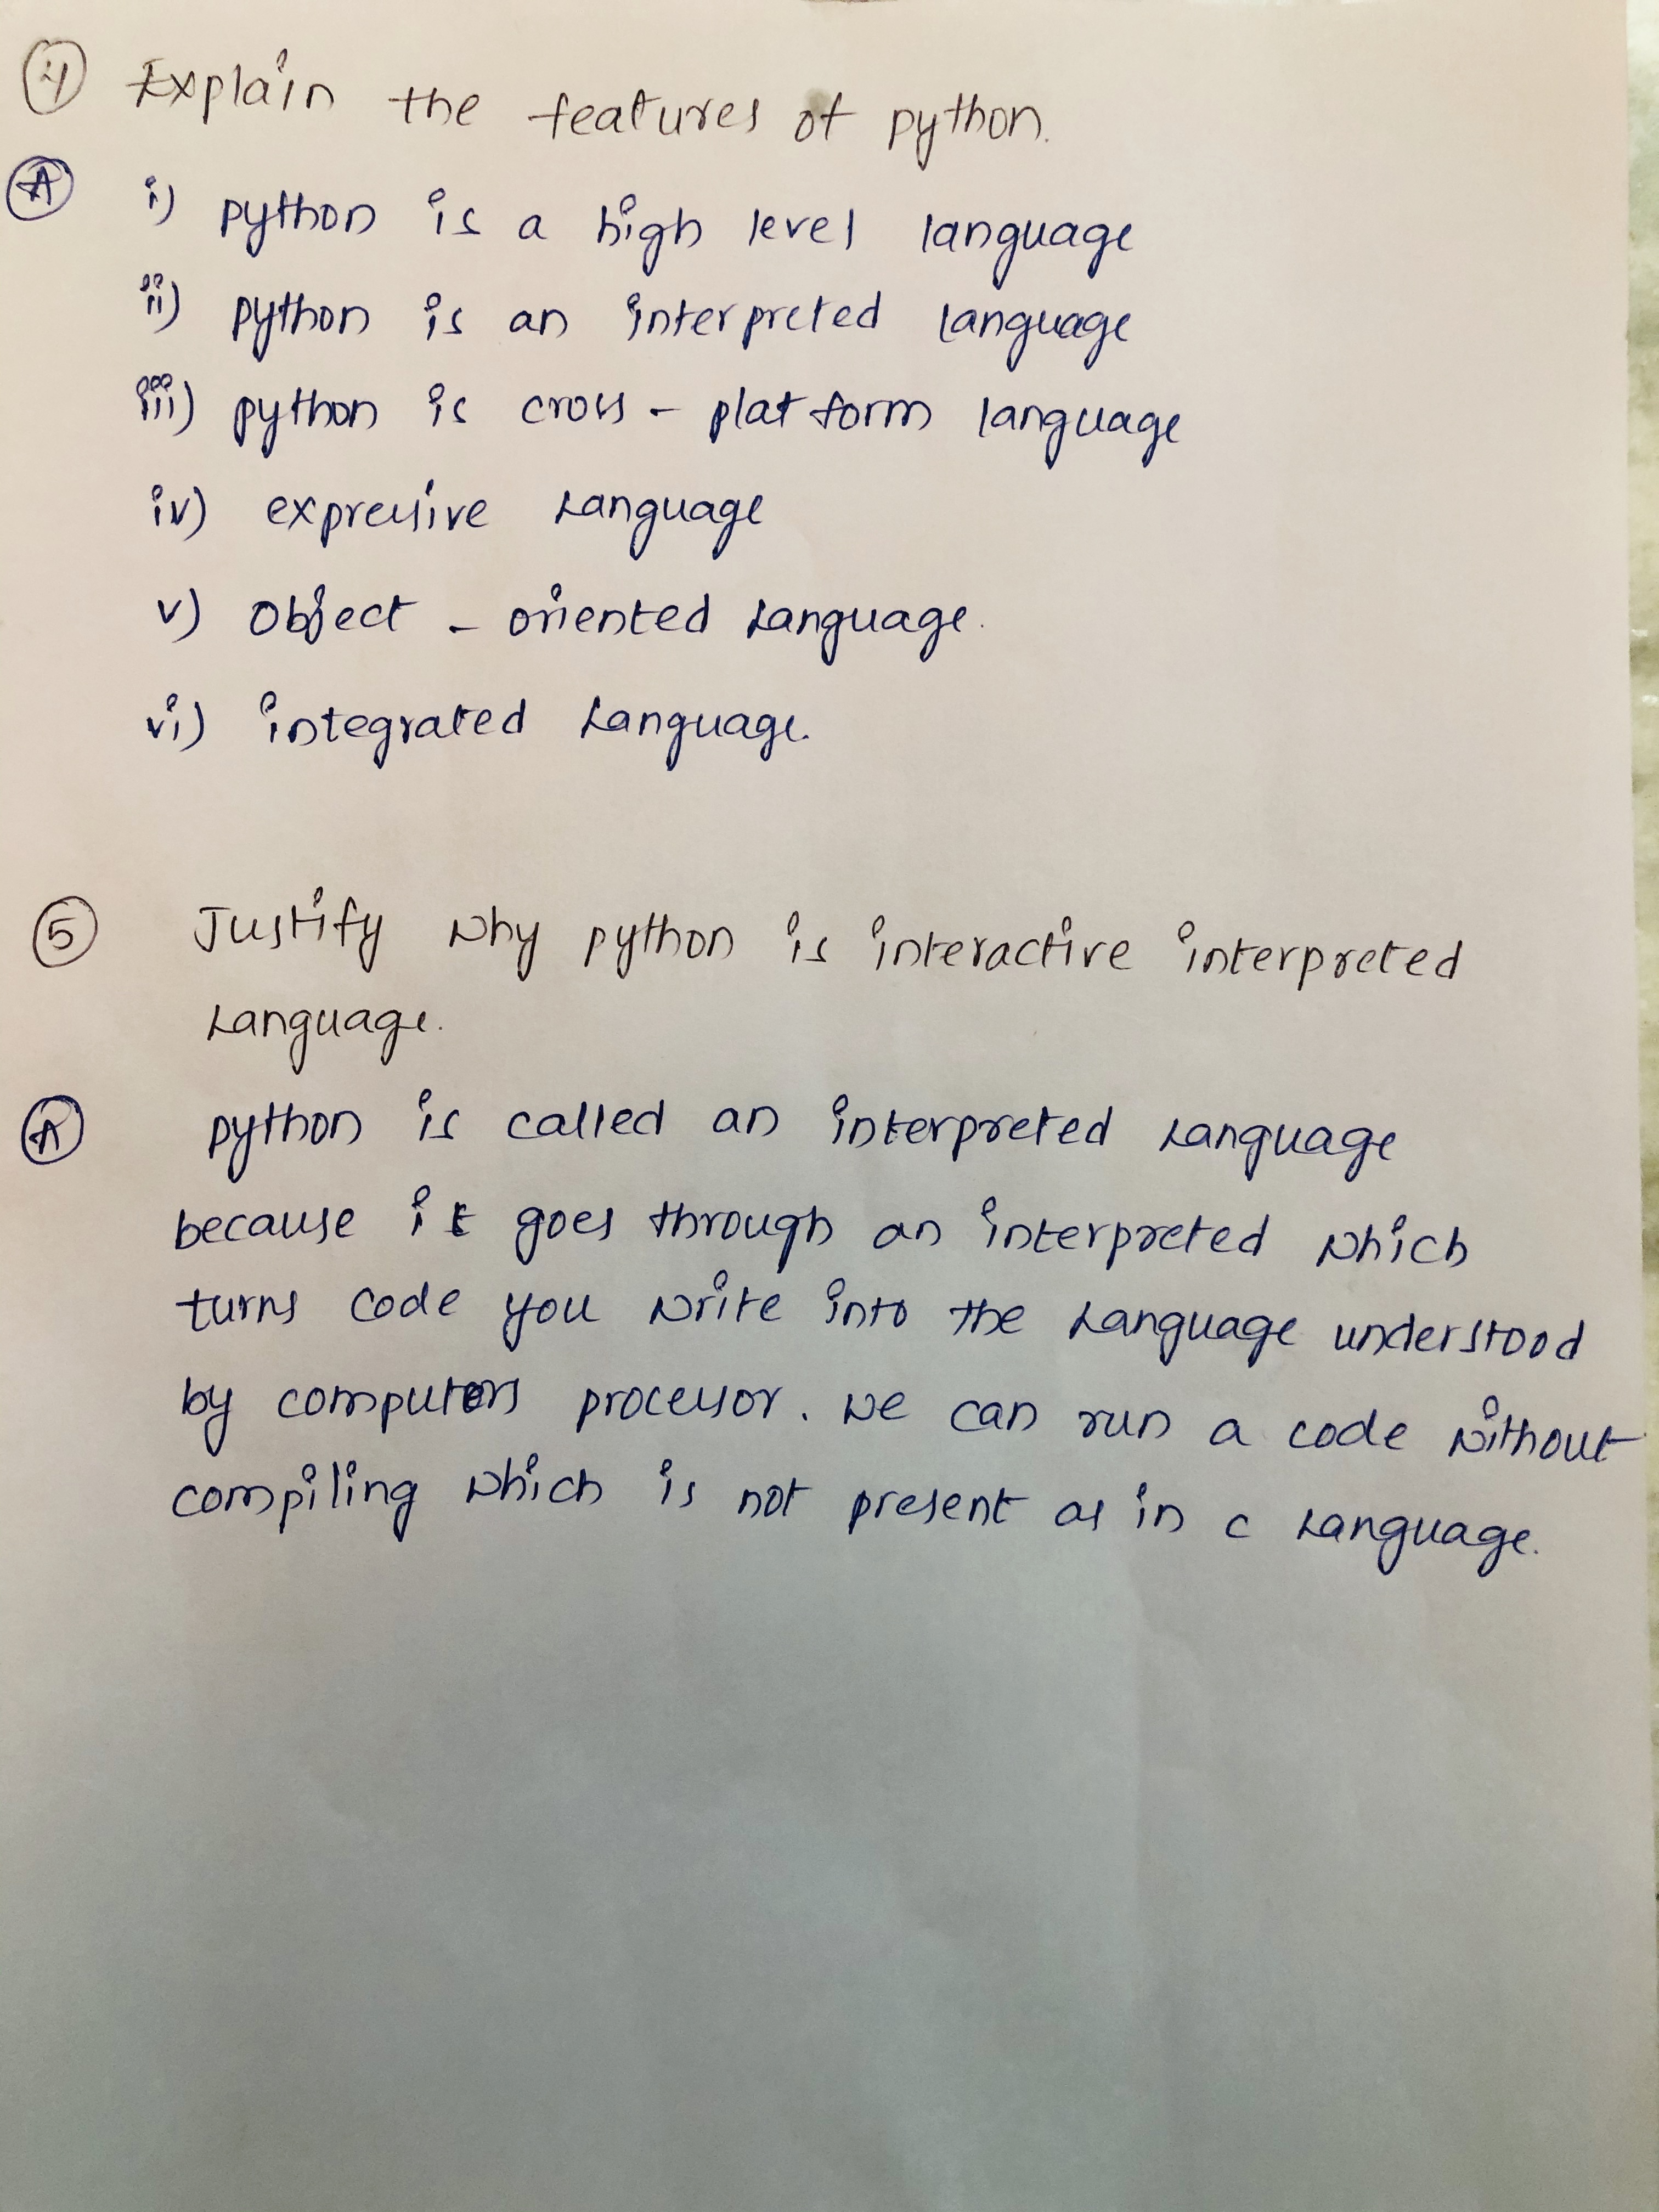 4 Explain the features of python.
A i) python is a high level language
ii) python is an interpreted language
iii) python is cross - platform language
iv) expressive Language
v) Object - oriented Language.
vi) integrated Language.
5 Justify why python is interactive interpreted
Language.
A python is called an interpreted Language
because it goes through an interpreted which
turns code you write into the Language understood
by computers processor. we can run a code without
compiling which is not present as in c Language.